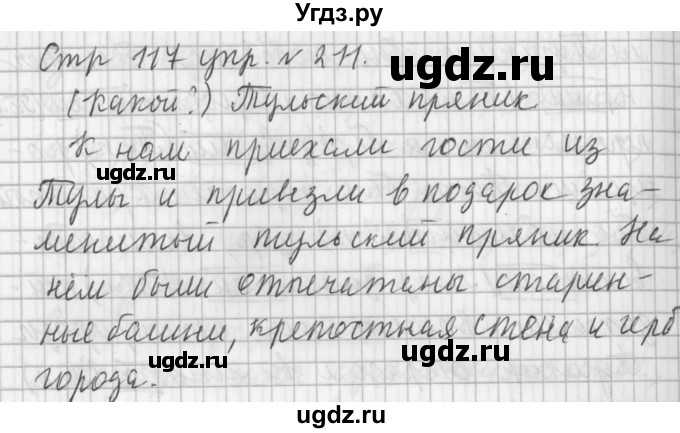 Угдз.ру
Стр 117 упр. № 211.
ugdz.ru
(какой?) Тульский пряник
К нам приехали гости из
ugdz.ru
Тулы и привезли в подарок зна-
ugdz.ru
менитый тульский пряник. На
нём были отпечатаны старин-
ные башни, крепостная стена и герб
ugdz.ru
ugdz.ru
города.
ugdz.ru